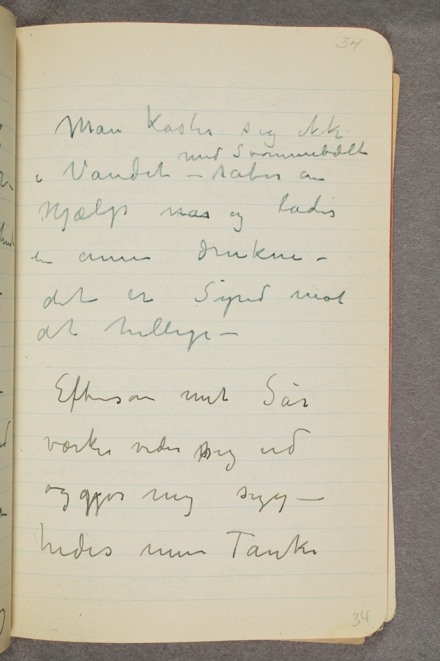 34
Man kaster sig ikke
med Svømmebælte
i Vandet – raber om
Hjælp og lader
en annen drukne –
det er Synd mot
det hellige –
Eftersom mit Sår
værker vider sig ud
og gjør mig syg –
ledes mine Tanker
34